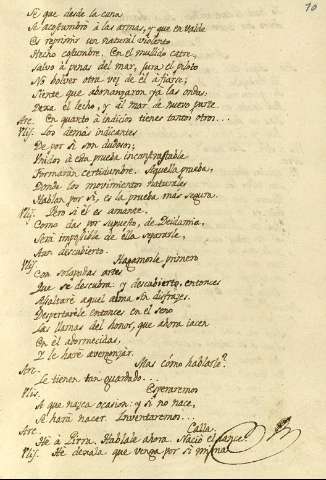 70
Si que desde la cuna
Se acostumbró à las armas, y que en valde
Es reprimir un natural violento
Hecho costumbre. En el mullido catre
Salvo à penas del mar, jura el piloto
No bolver otra vez de él à fiarse;
Siente que abonanzaron ya las ondas,
Dexa el lecho, y al mar de nuevo parte.
Arc. En quanto à indicios tienes tantos otros...
Ulis. Los demás indicantes
De por sí son dudosos;
Unidos à esta prueba incontrastable
Formarán certidumbre. Aquella prueba,
Donde los movimientos naturales
Hablan por sí, es la prueba más segura.
Pero si él es amante,
Como das por supuesto, de Deidamia,
Será imposible de ella separarle,
Aun descubierto.
Ulis. Hagamosle primero
Con solapadas artes
Que se descubra y descubierto, entonces
Assaltaré aquel alma sin disfraces.
Despertaréle entonces en el seno
Las llamas del honor, que ahora iacen
En él adormecidas,
Y le haré avergonzar.
Arc. Mas cómo hablarle?
Le tienen tan guardado...
Ulis. Esperaremos
A que nazca ocasion: y si no nace,
Se hará nacer. Inventaremos...
Arc. Calla.
Hé à Pirra. Hablale ahora. Nació el lance.
Ulis. He dexala que venga por sí misma